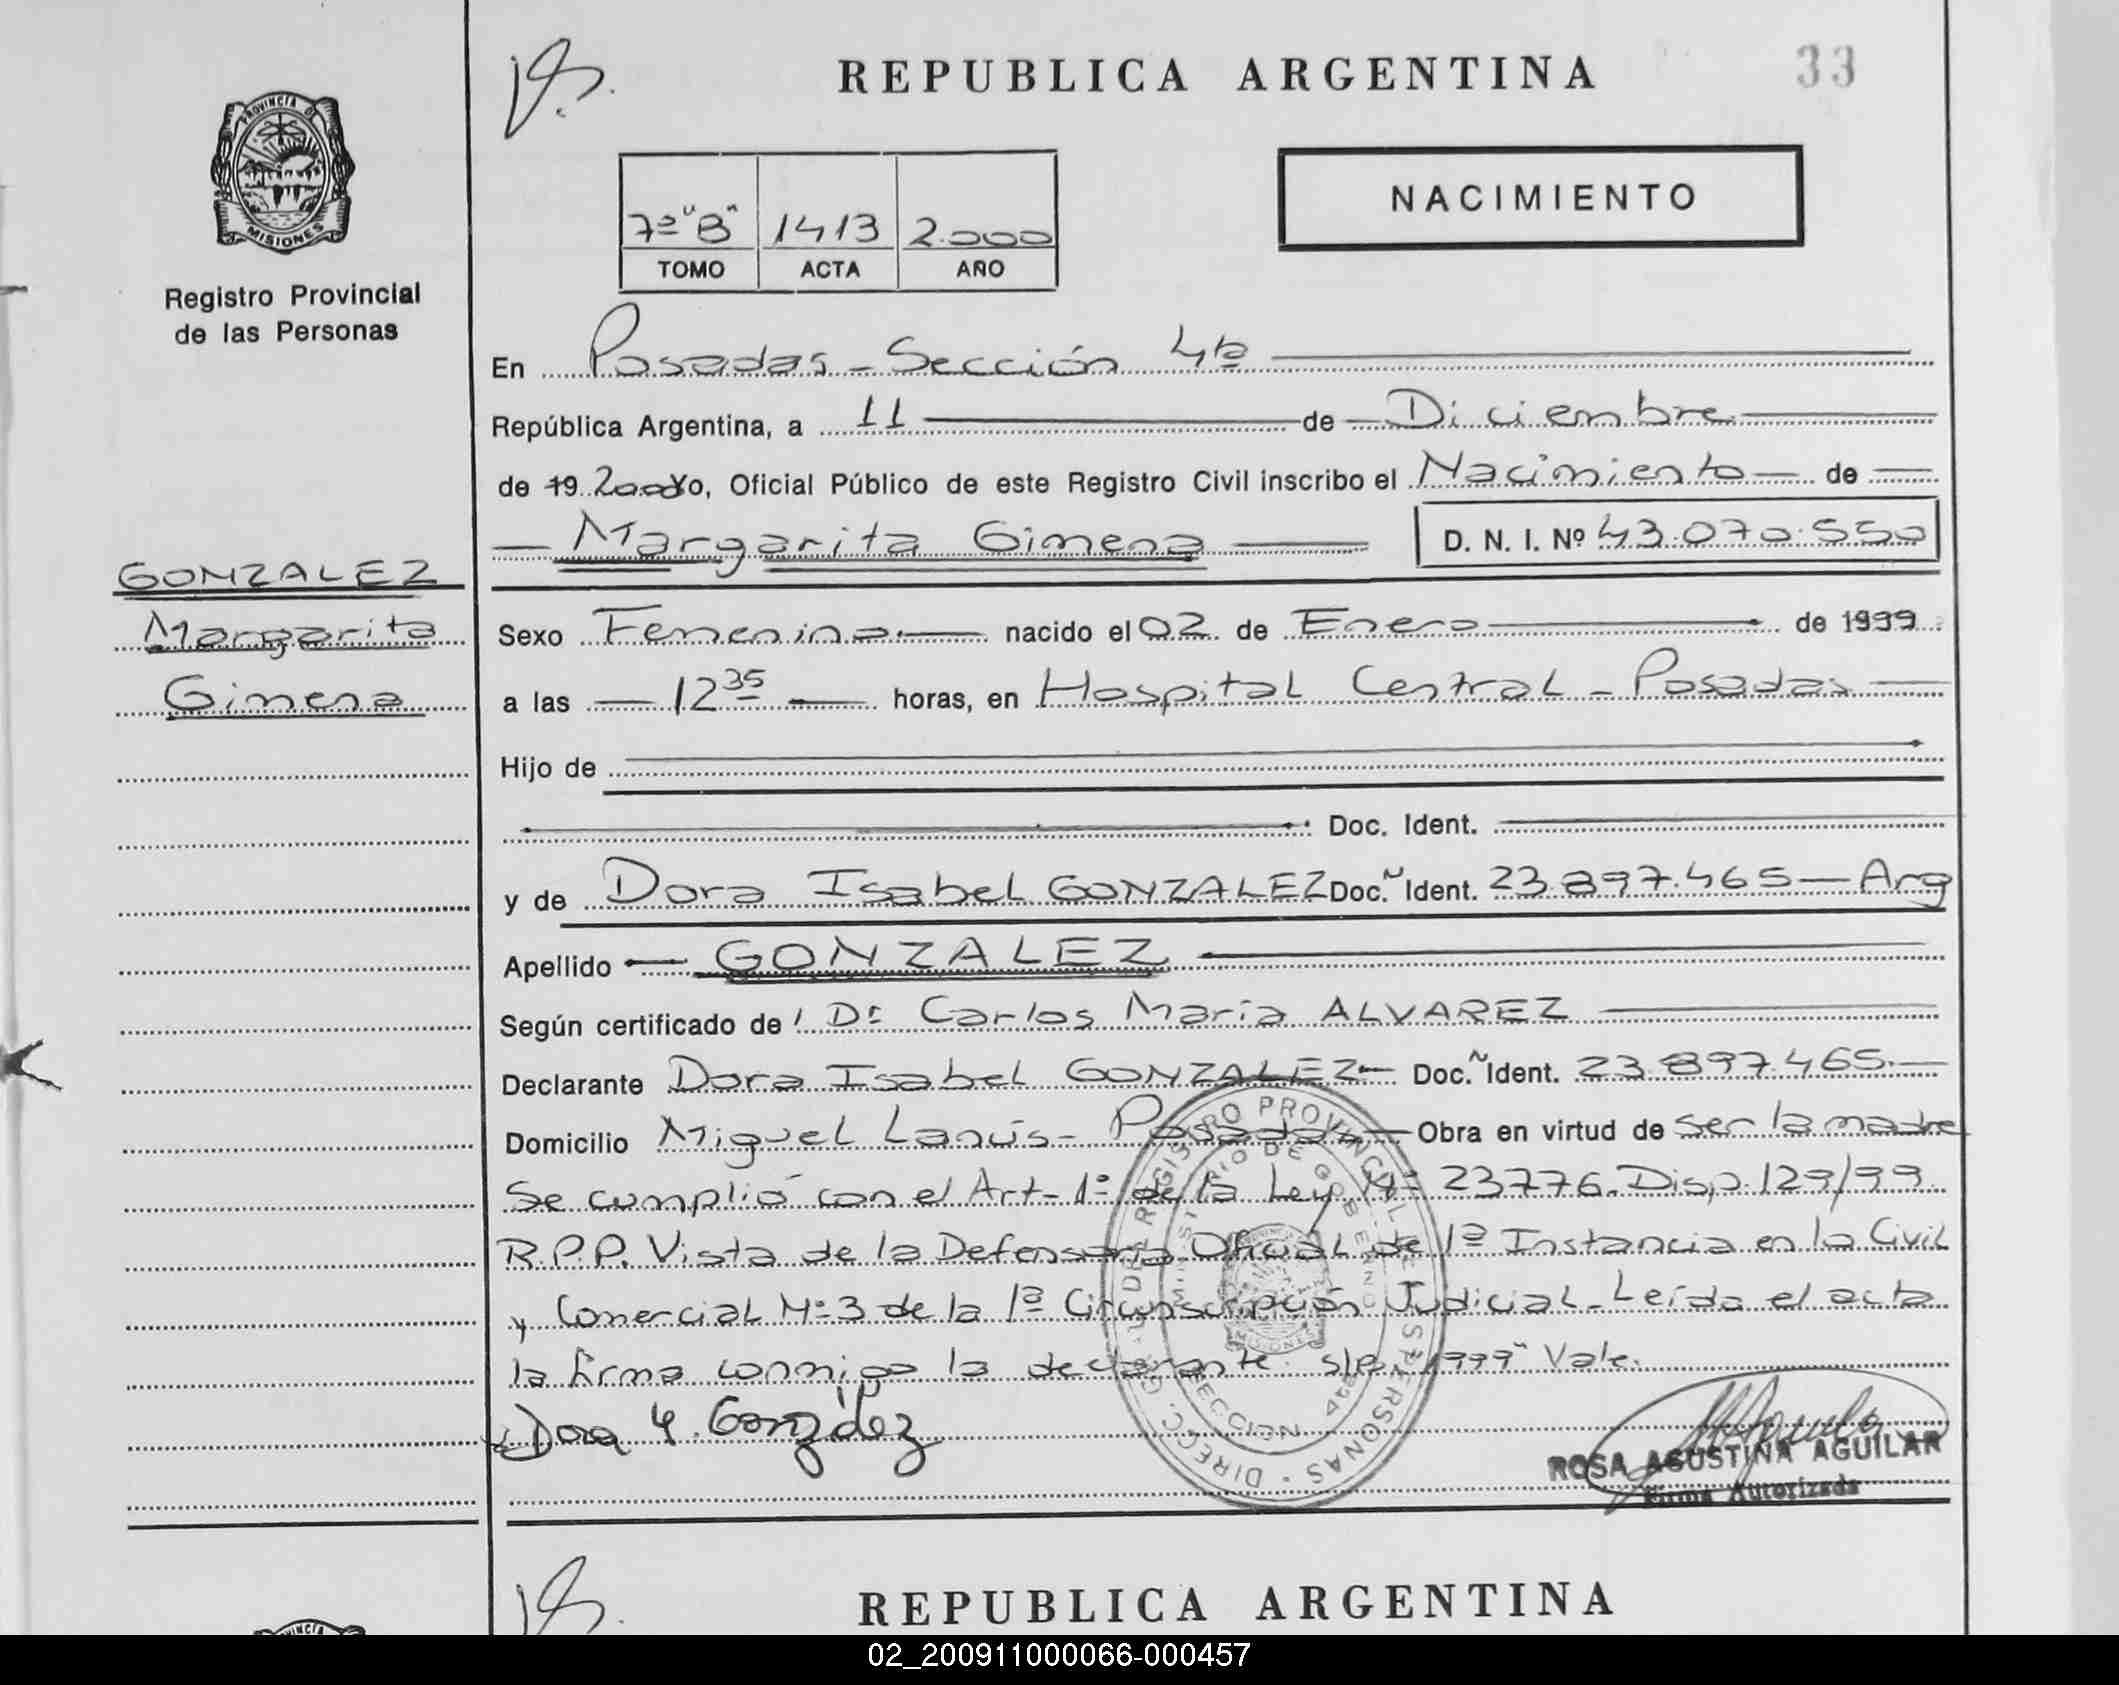 REPUBLICA ARGENTINA
33
PROVINCIA DE
MISIONES
Registro Provincial
de las Personas
NACIMIENTO
7º "B" 1413 2.000
TOMO ACTA AÑO
En Posadas - Sección 4ta
República Argentina, a 11 de Diciembre
de 19 2000 Yo, Oficial Público de este Registro Civil inscribo el Nacimiento de
Margarita Gimena D. N. I. Nº 43.070.550
GONZALEZ
Margarita
Gimena
Sexo Femenino nacido el 02 de Enero de 1999
a las 12 35 horas, en Hospital Central - Posadas
Hijo de
Doc. Ident.
y de Dora Isabel GONZALEZ Doc. Ident. 23.897.465 - Arg
Apellido GONZALEZ
Según certificado de Dr Carlos María ALVAREZ
Declarante Dora Isabel GONZALEZ Doc. Ident. 23.897.465
Domicilio Miguel Lanús - Posadas Obra en virtud de ser la madre
Se cumplió con el Art. 1º de la Ley Nº 23776. Disp. 129/99
R.P.P. Vista de la Defensoría Oficial de 1ª Instancia en lo Civil
y Comercial Nº 3 de la 1ª Circunscripción Judicial. Leída el acta
la firma conmigo la declarante. s/r. "1999" Vale.
Dora Y. González
DIRECC. GRAL. DEL REGISTRO PROVINCIAL DE LAS PERSONAS
MINISTERIO DE GOBIERNO
SECCION 4ta
MISIONES
ROSA AGUSTINA AGUILAR
Firma Autorizada
REPUBLICA ARGENTINA
02_200911000066-000457